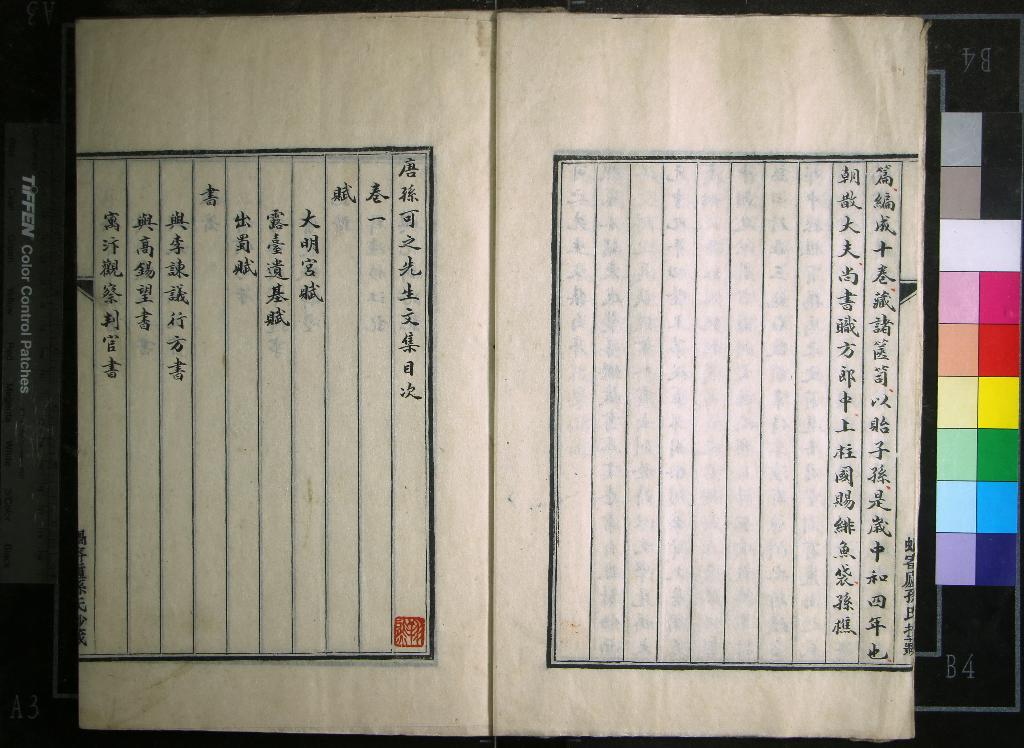 篇編成十卷藏諸篋笥以貽子孫是嵗中和四年也
朝散大夫尚書職方郎中上柱國賜緋魚袋孫樵
唐孫可之先生文集目次
卷一
賦
大明宮賦
露臺遺基賦
出蜀賦
書
與李諫議行方書
與高錫望書
寓汴觀察判官書
TIFFEN Color Control Patches
A3
B4
B4
A3